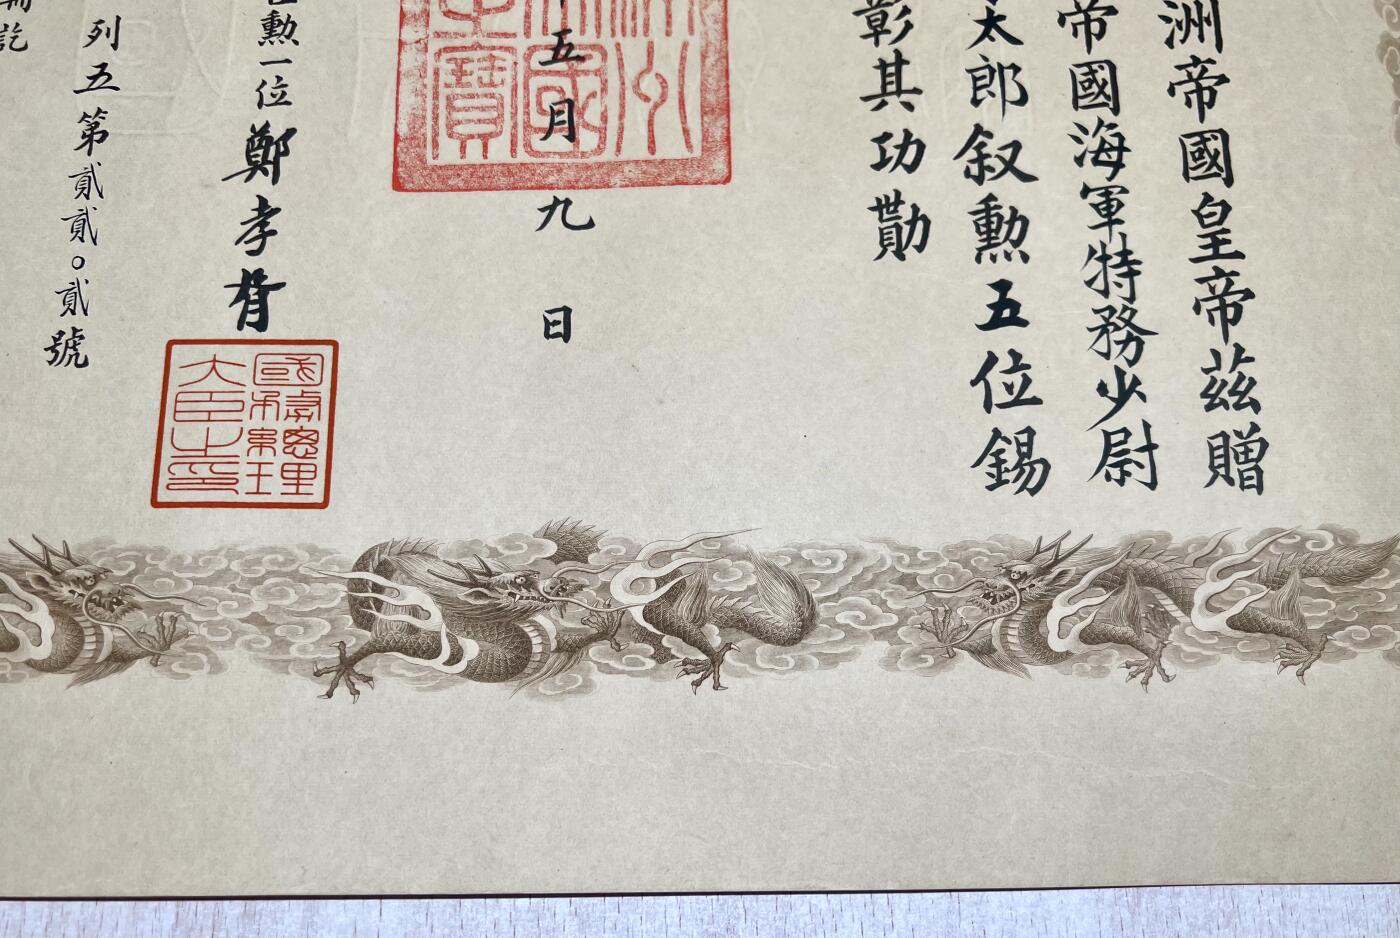 洲帝國皇帝茲贈
帝國海軍特務少尉
太郎叙勲五位錫
彰其功勛
五月九日
勲一位鄭孝胥
國務總理大臣之印
列五第貳貳○貳號
訖